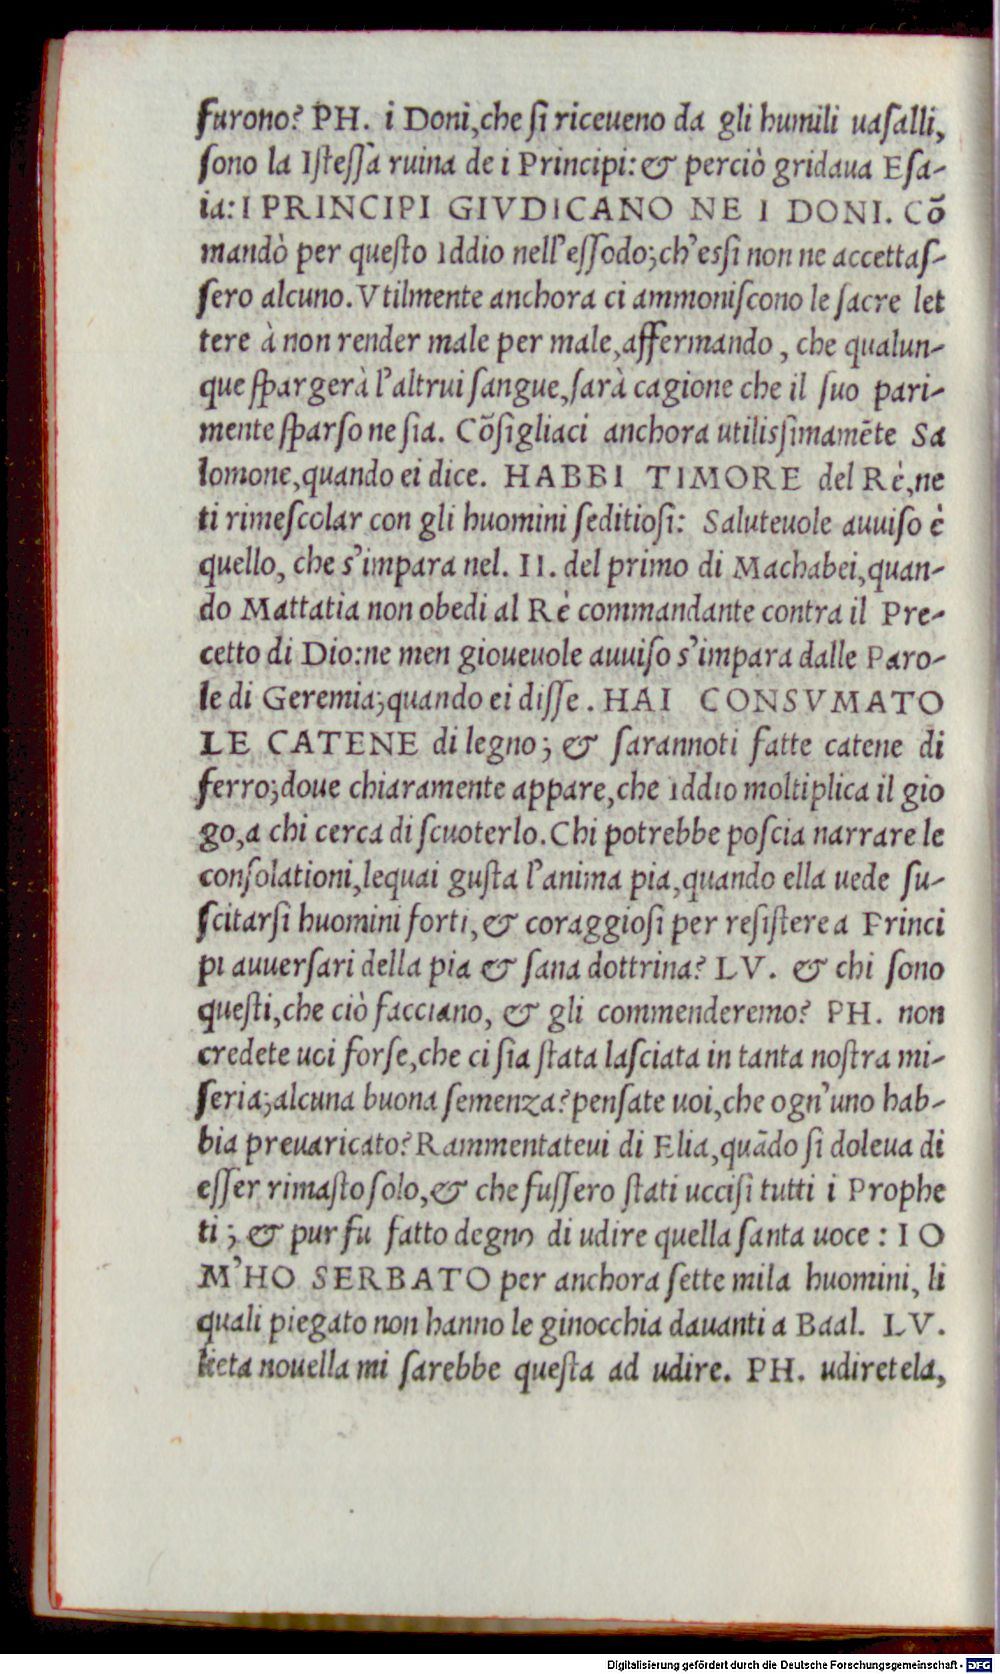 furono? PH. i Doni, che ſi riceueno da gli humili uaſalli,
ſono la Iſteſſa ruina de i Principi: & perciò gridaua Eſa-
ia: I PRINCIPI GIVDICANO NE I DONI. Cõ
mandò per queſto Iddio nell'eſſodo; ch'eſsi non ne accettaſ-
ſero alcuno. Vtilmente anchora ci ammoniſcono le ſacre let
tere à non render male per male, affermando, che qualun-
que ſpargerà l'altrui ſangue, ſarà cagione che il ſuo pari-
mente ſparſo ne ſia. Cõſigliaci anchora utiliſsimamẽte Sa
lomone, quando ei dice. HABBI TIMORE del Rè, ne
ti rimeſcolar con gli huomini ſeditioſi: Saluteuole auuiſo è
quello, che s'impara nel. II. del primo di Machabei, quan-
do Mattatia non obedi al Rè commandante contra il Pre-
cetto di Dio: ne men gioueuole auuiſo s'impara dalle Paro-
le di Geremia; quando ei diſſe. HAI CONSVMATO
LE CATENE di legno; & ſarannoti fatte catene di
ferro; doue chiaramente appare, che Iddio moltiplica il gio
go, a chi cerca di ſcuoterlo. Chi potrebbe poſcia narrare le
conſolationi, lequai guſta l'anima pia, quando ella uede ſu-
ſcitarſi huomini forti, & coraggioſi per reſiſtere a Princi
pi auuerſari della pia & ſana dottrina? LV. & chi ſono
queſti, che ciò facciano, & gli commenderemo? PH. non
credete uoi forſe, che ci ſia ſtata laſciata in tanta noſtra mi-
ſeria; alcuna buona ſemenza? penſate uoi, che ogn'uno hab-
bia preuaricato? Rammentateui di Elia, quãdo ſi doleua di
eſſer rimaſto ſolo, & che fuſſero ſtati ucciſi tutti i Prophe
ti; & pur fu fatto degno di udire quella ſanta uoce: I O
M'HO SERBATO per anchora ſette mila huomini, li
quali piegato non hanno le ginocchia dauanti a Baal. LV.
lieta nouella mi ſarebbe queſta ad udire. PH. udiretela,
Digitalisierung gefördert durch die Deutsche Forschungsgemeinschaft - DFG